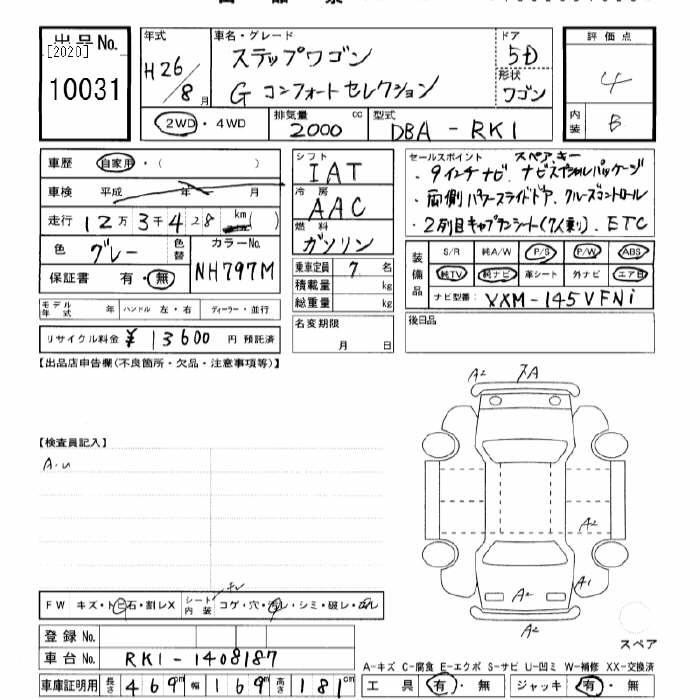 出品No.
[2020]
10031
年式 H26/8月
車名・グレード
ステップワゴン
G コンフォートセレクション
ドア 5D
形状 ワゴン
評価点
4
内装 B
2WD・4WD
排気量 2000 cc
型式 DBA - RK1
車歴 自家用・( )
車検 平成 年 月
走行 12万3千428 km( )
色 グレー 色替
カラーNo. NH797M
保証書 有・無
モデル年式 年 ハンドル 左・右 ディーラー・並行
リサイクル料金 ¥13600円 預託済
シフト IAT
冷房 AAC
燃料 ガソリン
乗車定員 7 名
積載量 kg
総重量 kg
名変期限
月 日
セールスポイント スペアキー
・9インチナビ、ナビスペシャルパッケージ
・両側パワースライドドア、クルーズコントロール
・2列目キャプテンシート(7人乗り)、ETC
装備品 S/R 純A/W P/S P/W ABS
純TV 純ナビ 革シート 外ナビ エアB
ナビ型番: VXM-145VFNi
後日品
【出品店申告欄(不良箇所・欠品・注意事項等)】
【検査員記入】
A・U
A2
A
A2
A1
A2
A2
FW キズ・トビ石・割レX
シート内装 コゲ・穴・汚レ・シミ・破レ
登録No.
車台No. RK1-1408187
車庫証明用 長さ 469cm 幅 169cm 高さ 181cm
スペア
A-キズ C-腐食 E-エクボ S-サビ U-凹ミ W-補修 XX-交換済
工具 有・無 ジャッキ 有・無